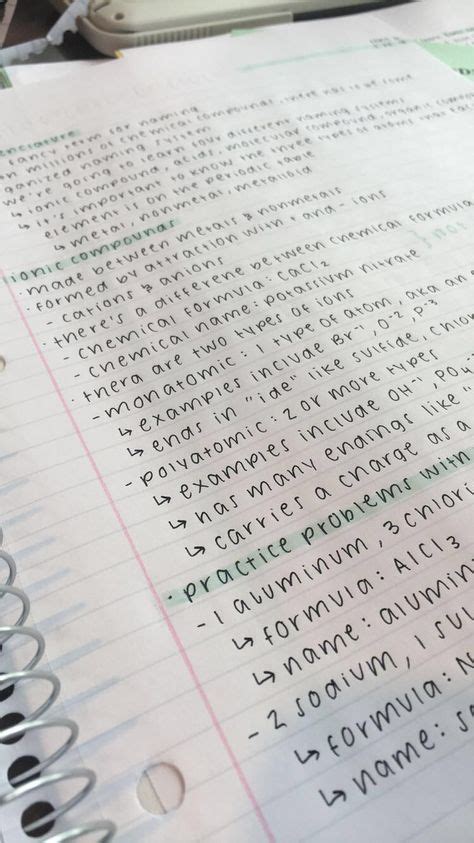 enclature
fancy term for naming
millions of chemical compounds, there has to be some
ganized naming system
we're going to learn four different naming systems
↳ ionic compound, acids, molecular compound, organic compou
↳ it's important to know the three types of atoms that
element is on the periodic table
↳ metal, nonmetal, metalloid
ionic compounds
· made between metals & nonmetals
· formed by attraction with + and - ions
- cations & anions
· there's a differene between chemical formula
- chemical formula: CaCl2
- chemical name: potassium nitrate
· thera are two types of ions
- monatomic: 1 type of atom, aka an
↳ examples include Br-1, O-2, P-3
↳ ends in "ide" like sulfide, chlor
- polyatomic: 2 or more types
↳ examples include OH-1, PO4
↳ has many endings like
↳ carries a charge as a
· practice problems with
- 1 aluminum, 3 chlori
↳ formula: AlCl3
↳ name: alumin
- 2 sodium, 1 sul
↳ formula: N
↳ name: so